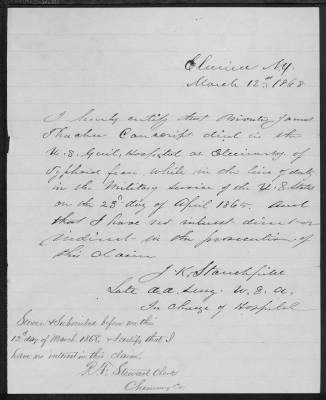 Elmira N.Y.
March 12th 1868
I hereby certify that Private James
Thacher Conscript died in the
U. S. Genl, Hospital at Elmira N.Y. of
Typhoid fever, while in the line of duty
in the Military service of the U. S. States
on the 23d day of April 1865. And
that I have no interest direct or
indirect in the prosecution of
this claim
J. K. Stanchfield
Late a.a. Surg. U. S. A.
In Charge of Hospital
Sworn & Subscribed before me this
12th day of March 1868, & I certify that I
have no interest in this claim.
Stewart Clerk
Chemung Co.